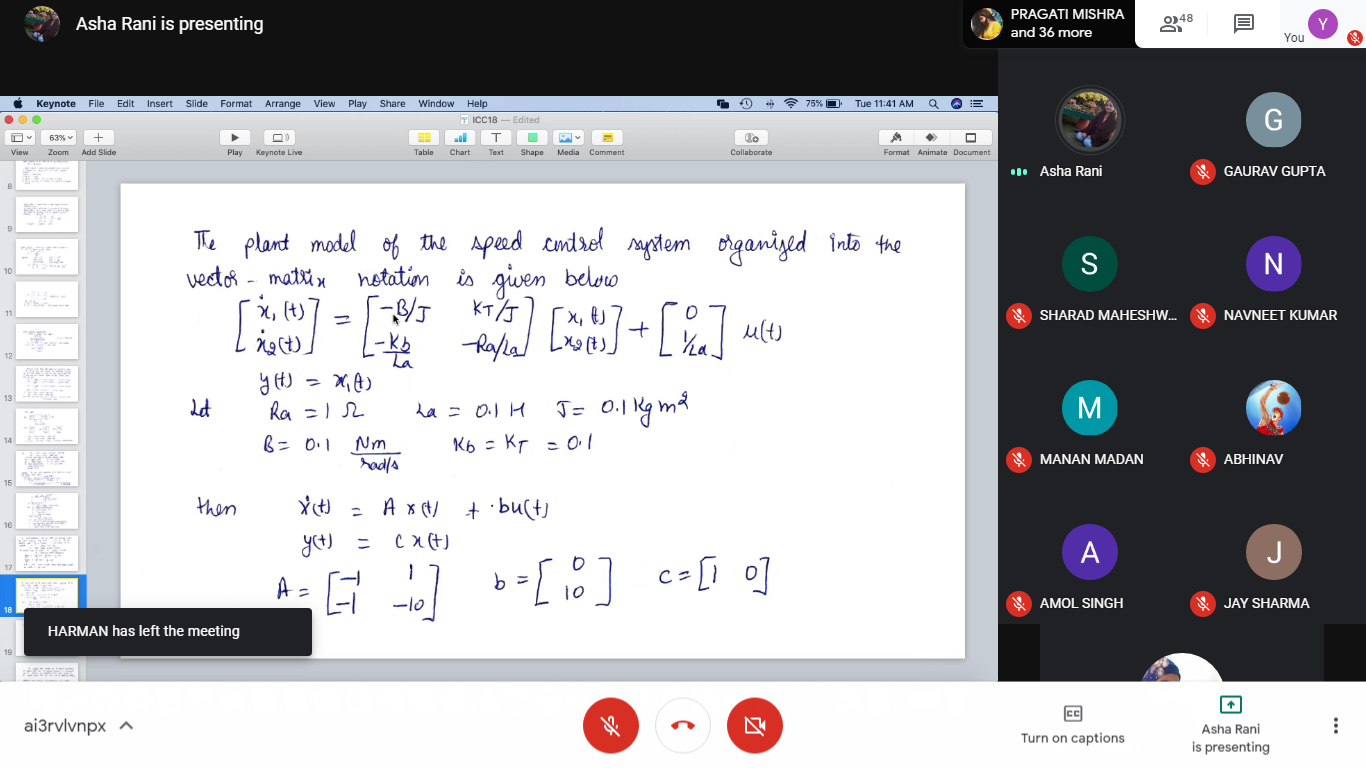 Asha Rani is presenting
PRAGATI MISHRA
and 36 more
48
You
Y
Keynote File Edit Insert Slide Format Arrange View Play Share Window Help
75% Tue 11:41 AM
ICC18 — Edited
63%
View Zoom Add Slide
Play Keynote Live
Table Chart Text Shape Media Comment
Collaborate
Format Animate Document
8
9
10
11
12
13
14
15
16
17
18
19
The plant model of the speed control system organized into the
vector-matrix notation is given below
[ẋ₁(t) ẋ₂(t)] = [-B/J KT/J -Kb/La -Ra/La] [x₁(t) x₂(t)] + [0 1/La] u(t)
y(t) = x₁(t)
Let Ra = 1 Ω La = 0.1 H J = 0.1 Kg m²
B = 0.1 Nm/rad/s Kb = KT = 0.1
then ẋ(t) = A x(t) + bu(t)
y(t) = c x(t)
A = [-1 1 -1 -10] b = [0 10] c = [1 0]
HARMAN has left the meeting
Asha Rani
G
GAURAV GUPTA
S
SHARAD MAHESHW...
N
NAVNEET KUMAR
M
MANAN MADAN
ABHINAV
A
AMOL SINGH
J
JAY SHARMA
ai3rvlvnpx
Turn on captions
Asha Rani
is presenting